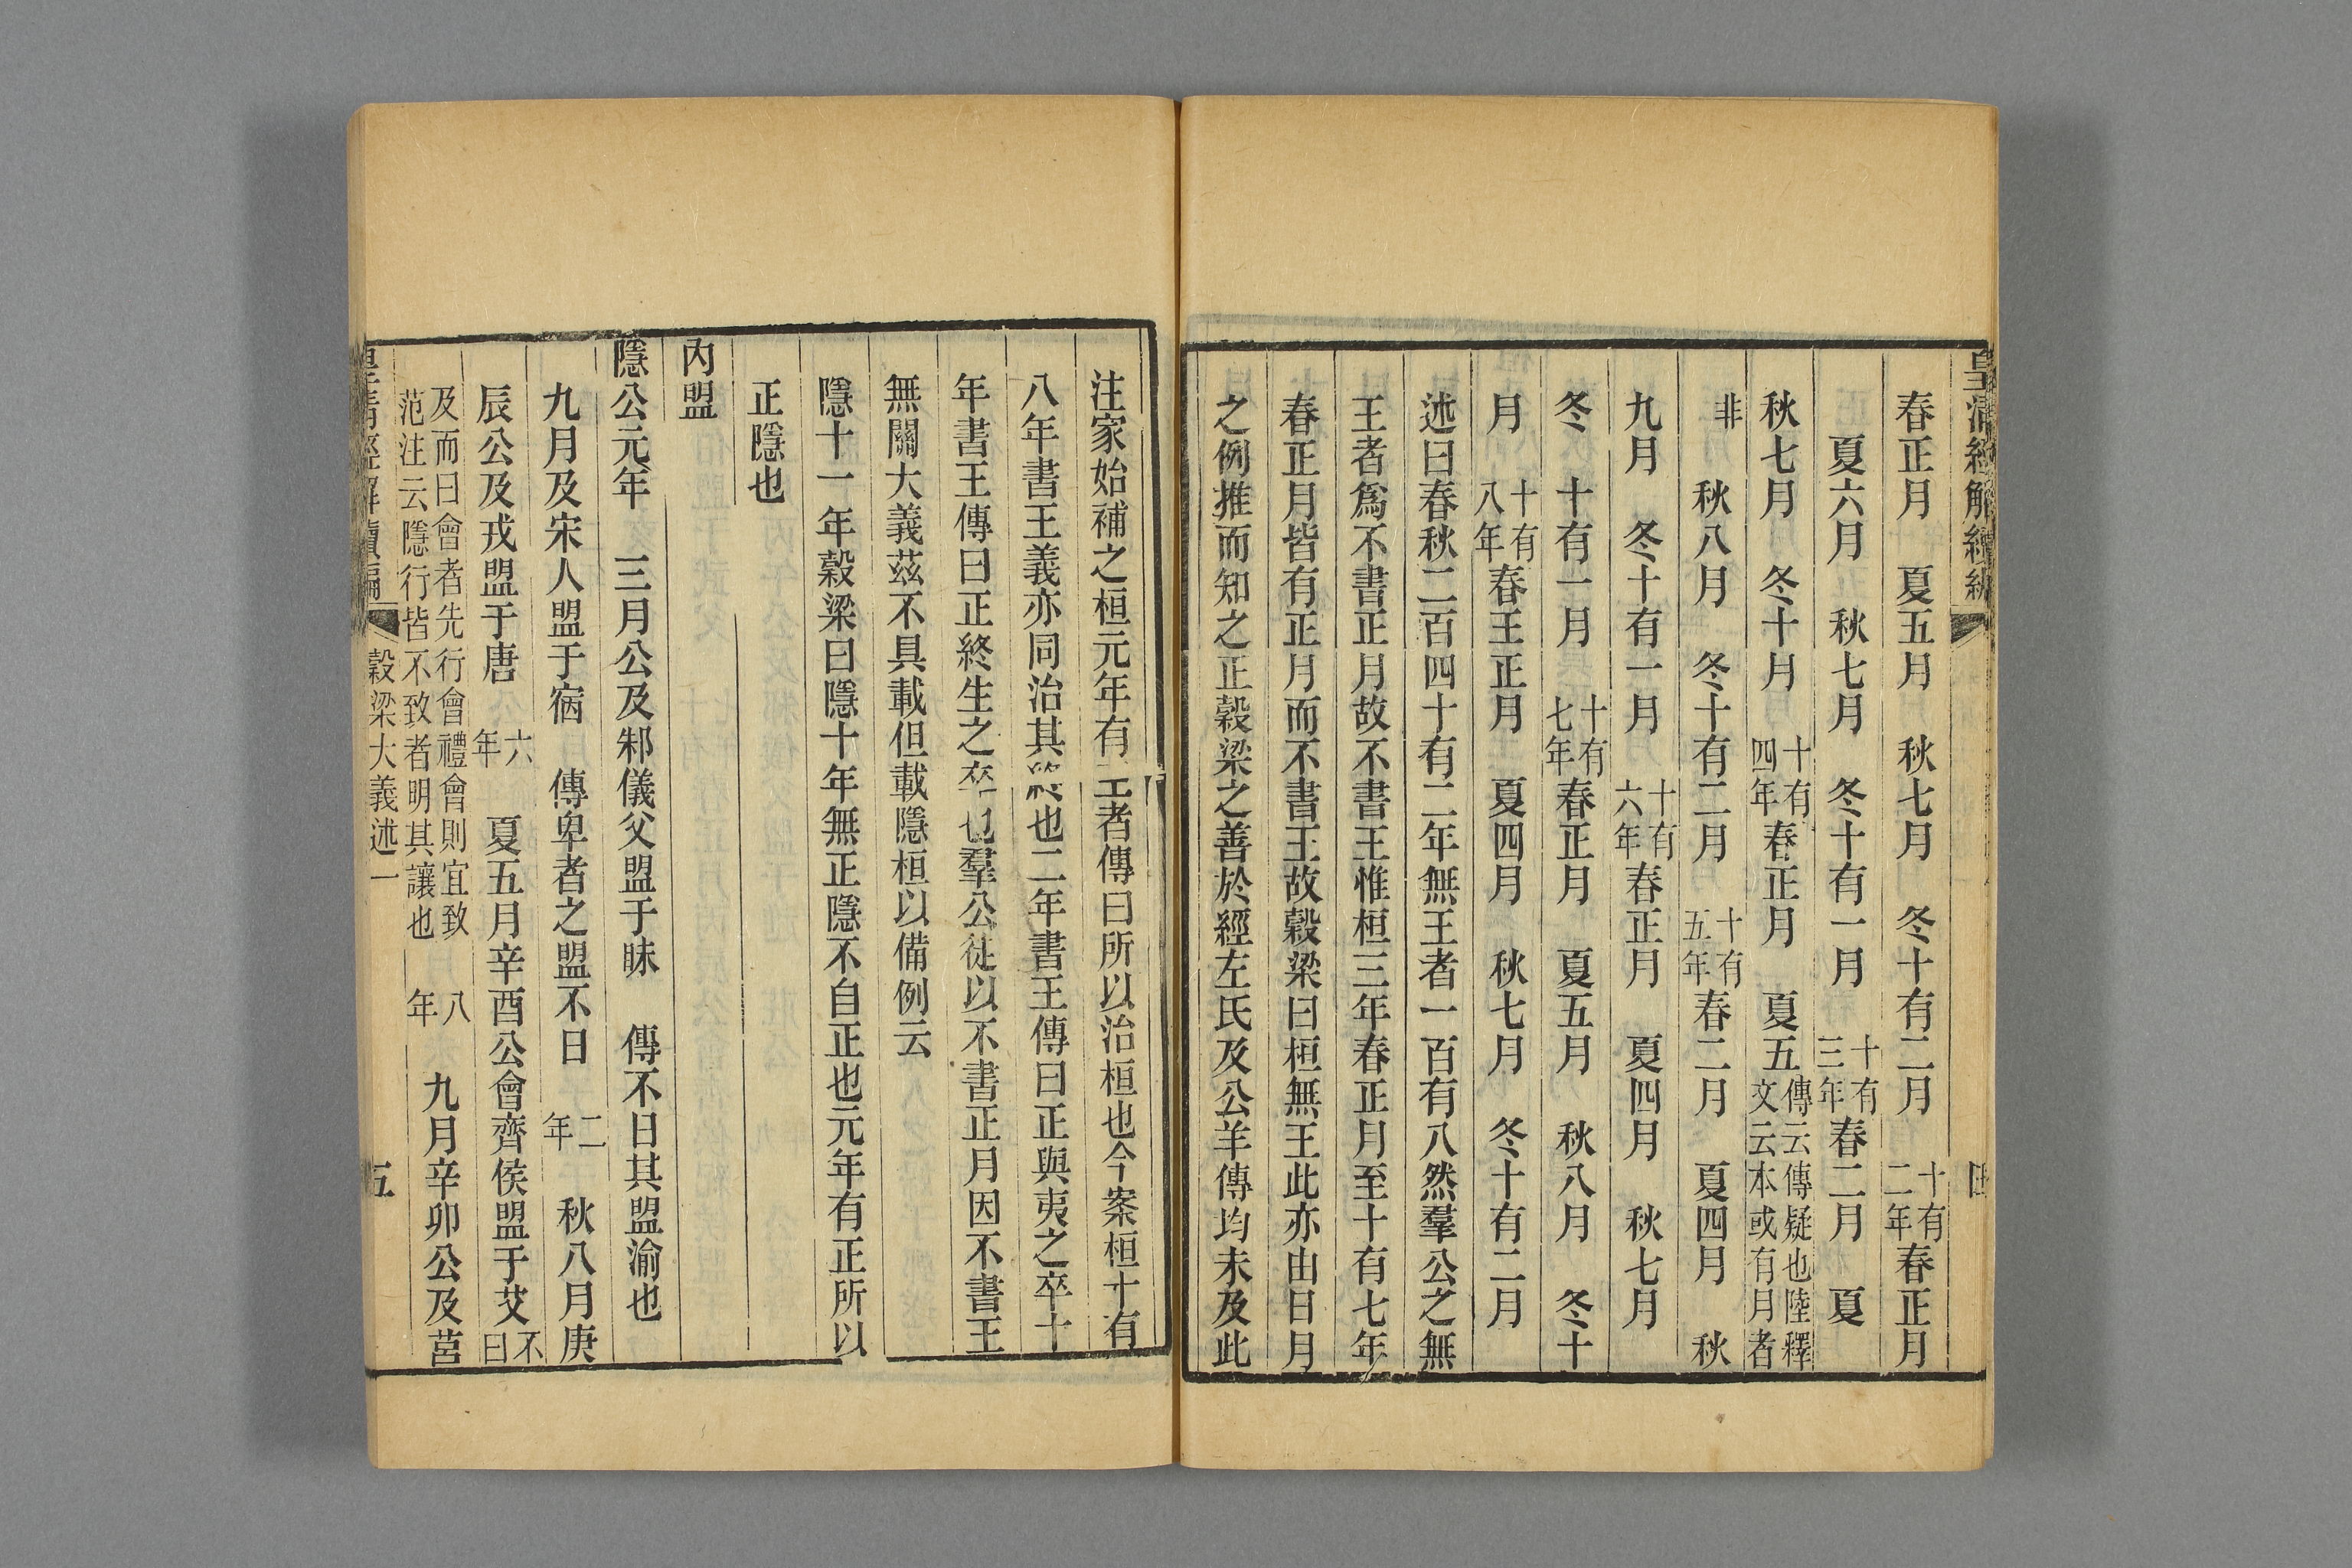 皇清經解續編
春正月　夏五月　秋七月　冬十有二月　十有二年春正月
夏六月　秋七月　冬十有一月　十有三年春二月　夏
秋七月　冬十月　十有四年春正月　夏五傳云傳疑也陸釋文云本或有月者
非　秋八月　冬十有二月　十有五年春二月　夏四月　秋
九月　冬十有一月　十有六年春正月　夏四月　秋七月
冬　十有一月　十有七年春正月　夏五月　秋八月　冬十
月　十有八年春王正月　夏四月　秋七月　冬十有二月
述曰春秋二百四十有二年無王者一百有八然羣公之無
王者爲不書正月故不書王惟桓三年春正月至十有七年
春正月皆有正月而不書王故穀梁曰桓無王此亦由日月
之例推而知之正穀梁之善於經左氏及公羊傳均未及此
注家始補之桓元年有王者傳曰所以治桓也今案桓十有
八年書王義亦同治其終也二年書王傳曰正與夷之卒十
年書王傳曰正終生之卒也羣公徒以不書正月因不書王
無關大義茲不具載但載隱桓以備例云
隱十一年穀梁曰隱十年無正隱不自正也元年有正所以
正隱也
內盟
隱公元年　三月公及邾儀父盟于眛　傳不日其盟渝也
九月及宋人盟于宿　傳卑者之盟不日　二年　秋八月庚
辰公及戎盟于唐　六年　夏五月辛酉公會齊侯盟于艾不日
及而曰會者先行會禮會則宜致范注云隱行皆不致者明其讓也　八年　九月辛卯公及莒
皇清經解續編　穀梁大義述一　五